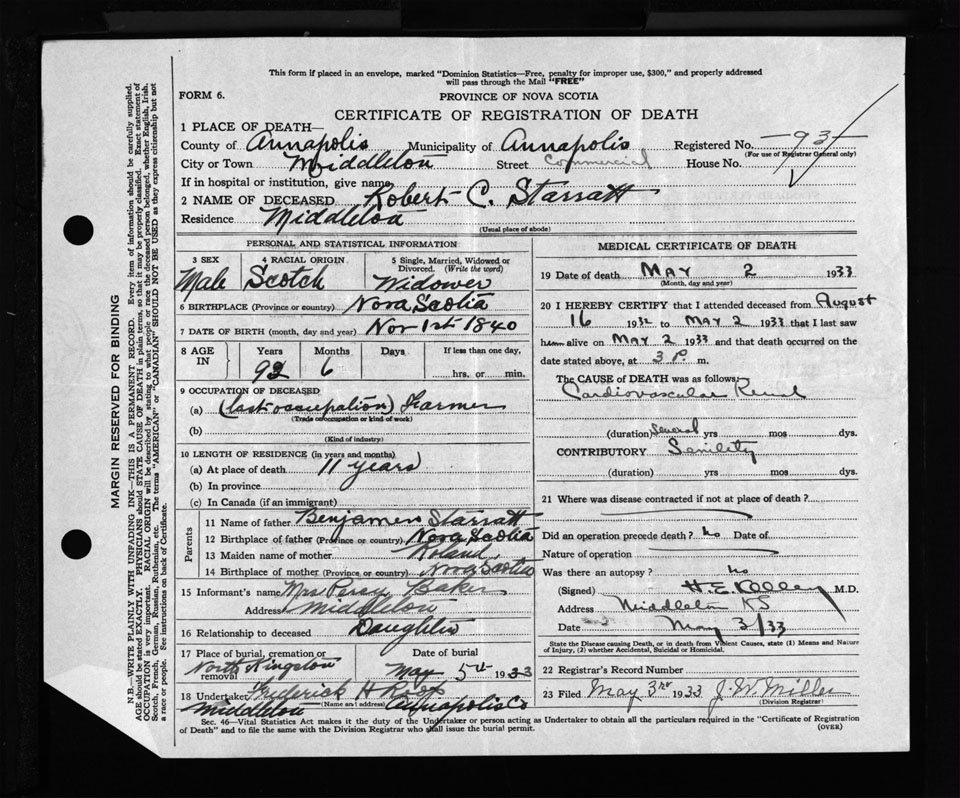 This form if placed in an envelope, marked "Dominion Statistics—Free, penalty for improper use, $300," and properly addressed
will pass through the Mail "FREE"
FORM 6.
PROVINCE OF NOVA SCOTIA
CERTIFICATE OF REGISTRATION OF DEATH
1 PLACE OF DEATH—
County of Annapolis Municipality of Annapolis Registered No. 93
(For use of Registrar General only)
City or Town Middleton Street Commercial House No.
If in hospital or institution, give name
2 NAME OF DECEASED Robert C. Starratt
Residence Middleton
(Usual place of abode)
PERSONAL AND STATISTICAL INFORMATION
3 SEX 4 RACIAL ORIGIN 5 Single, Married, Widowed or
Divorced. (Write the word)
Male Scotch Widower
6 BIRTHPLACE (Province or country) Nova Scotia
7 DATE OF BIRTH (month, day and year) Nov 1st 1840
8 AGE IN Years Months Days If less than one day,
92 6 hrs. or min.
9 OCCUPATION OF DECEASED
(a) (last occupation) Farmer
(Trade or occupation or kind of work)
(b)
(Kind of industry)
10 LENGTH OF RESIDENCE (in years and months)
(a) At place of death 11 years
(b) In province
(c) In Canada (if an immigrant)
Parents
11 Name of father Benjamen Starratt
12 Birthplace of father (Province or country) Nova Scotia
13 Maiden name of mother Roland
14 Birthplace of mother (Province or country) Nova Scotia
15 Informant's name Mrs Percy Baker
Address Middleton
16 Relationship to deceased Daughter
17 Place of burial, cremation or removal Date of burial
North Kingston May 5th 1933
18 Undertaker Frederick H
(Name and address)
Middleton Annapolis Co
MEDICAL CERTIFICATE OF DEATH
19 Date of death May 2 1933
(Month, day and year)
20 I HEREBY CERTIFY that I attended deceased from August
16 1932 to May 2 1933 that I last saw
him alive on May 2 1933 and that death occurred on the
date stated above, at 3 P m.
The CAUSE OF DEATH was as follows:
Cardiovascular Renal
(duration) Several yrs mos dys.
CONTRIBUTORY Senility
(duration) yrs mos dys.
21 Where was disease contracted if not at place of death?
Did an operation precede death? no Date of
Nature of operation
Was there an autopsy? no
(Signed) H. E. Kelley M.D.
Address Middleton NS
Date May 3/33
State the Disease causing Death, or in death from Violent Causes, state (1) Means and Nature
of Injury, (2) whether Accidental, Suicidal or Homicidal.
22 Registrar's Record Number
23 Filed May 3rd 1933 J. W. Miller
(Division Registrar)
Sec. 46—Vital Statistics Act makes it the duty of the Undertaker or person acting as Undertaker to obtain all the particulars required in the "Certificate of Registration
of Death" and to file the same with the Division Registrar who shall issue the burial permit.
(OVER)
MARGIN RESERVED FOR BINDING
N.B.—WRITE PLAINLY WITH UNFADING INK—THIS IS A PERMANENT RECORD. Every item of information should be carefully supplied.
AGE should be stated EXACTLY. PHYSICIANS should STATE CAUSE OF DEATH in plain terms, so that it may be properly classified. Exact statement of
OCCUPATION is very important. RACIAL ORIGIN will be described by stating to what people or race the deceased person belonged, whether English, Irish,
Scotch, French, German, Russian, Ruthenian, etc. The terms "AMERICAN" or "CANADIAN" SHOULD NOT BE USED as they express citizenship but not
a race or people. See instructions on back of Certificate.